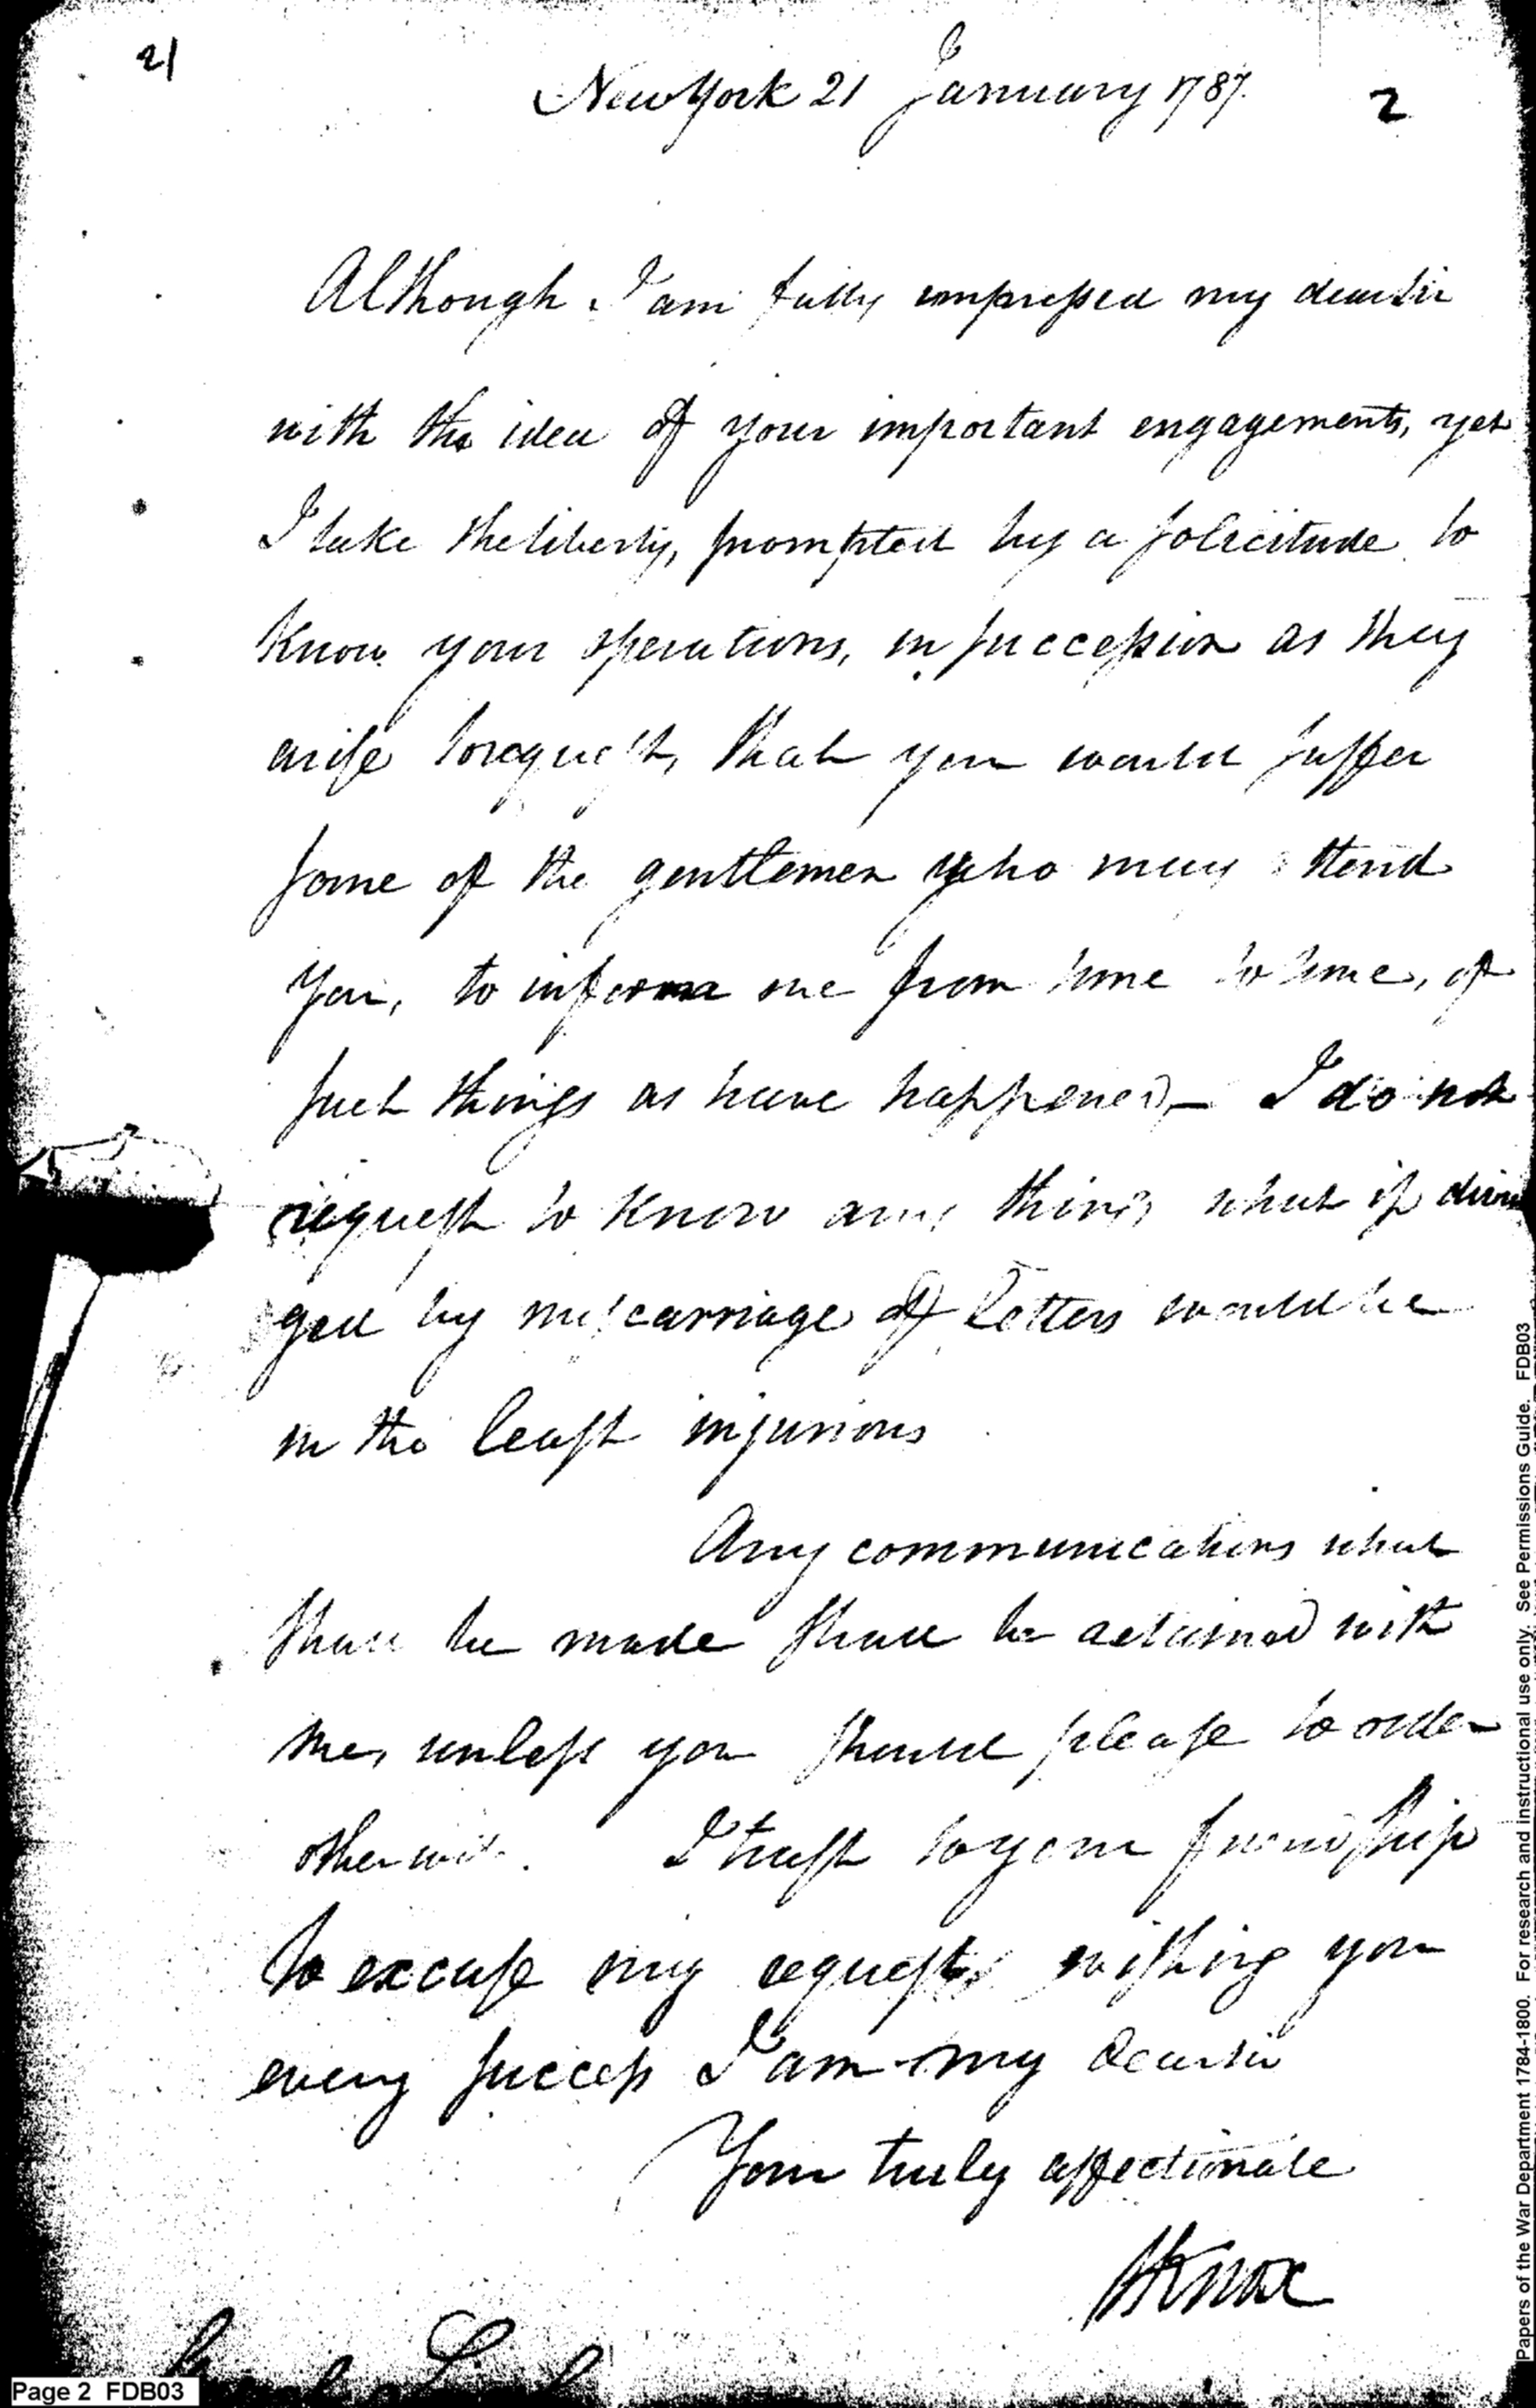 21
New York 21 January 1787.
2
Although I am fully impressed my dear sir
with the idea of your important engagements, yet
I take the liberty, prompted by a solicitude to
know your operations, in succession as they
arise to request, that you would suffer
some of the gentlemen who may attend
you, to inform me from time to time, of
such things as have happened – I do not
request to know any thing what if divul
ged by miscarriage of letters would be
in the least injurious
Any communications what
shall be made shall be retained with
me, unless you should please to order
otherwise. I trust to your friendship
to excuse my request wishing you
every success I am my dear sir
Your truly affectionate
HKnox
Page 2 FDB03
Papers of the War Department 1784-1800. For research and instructional use only. See Permissions Guide. FDB03